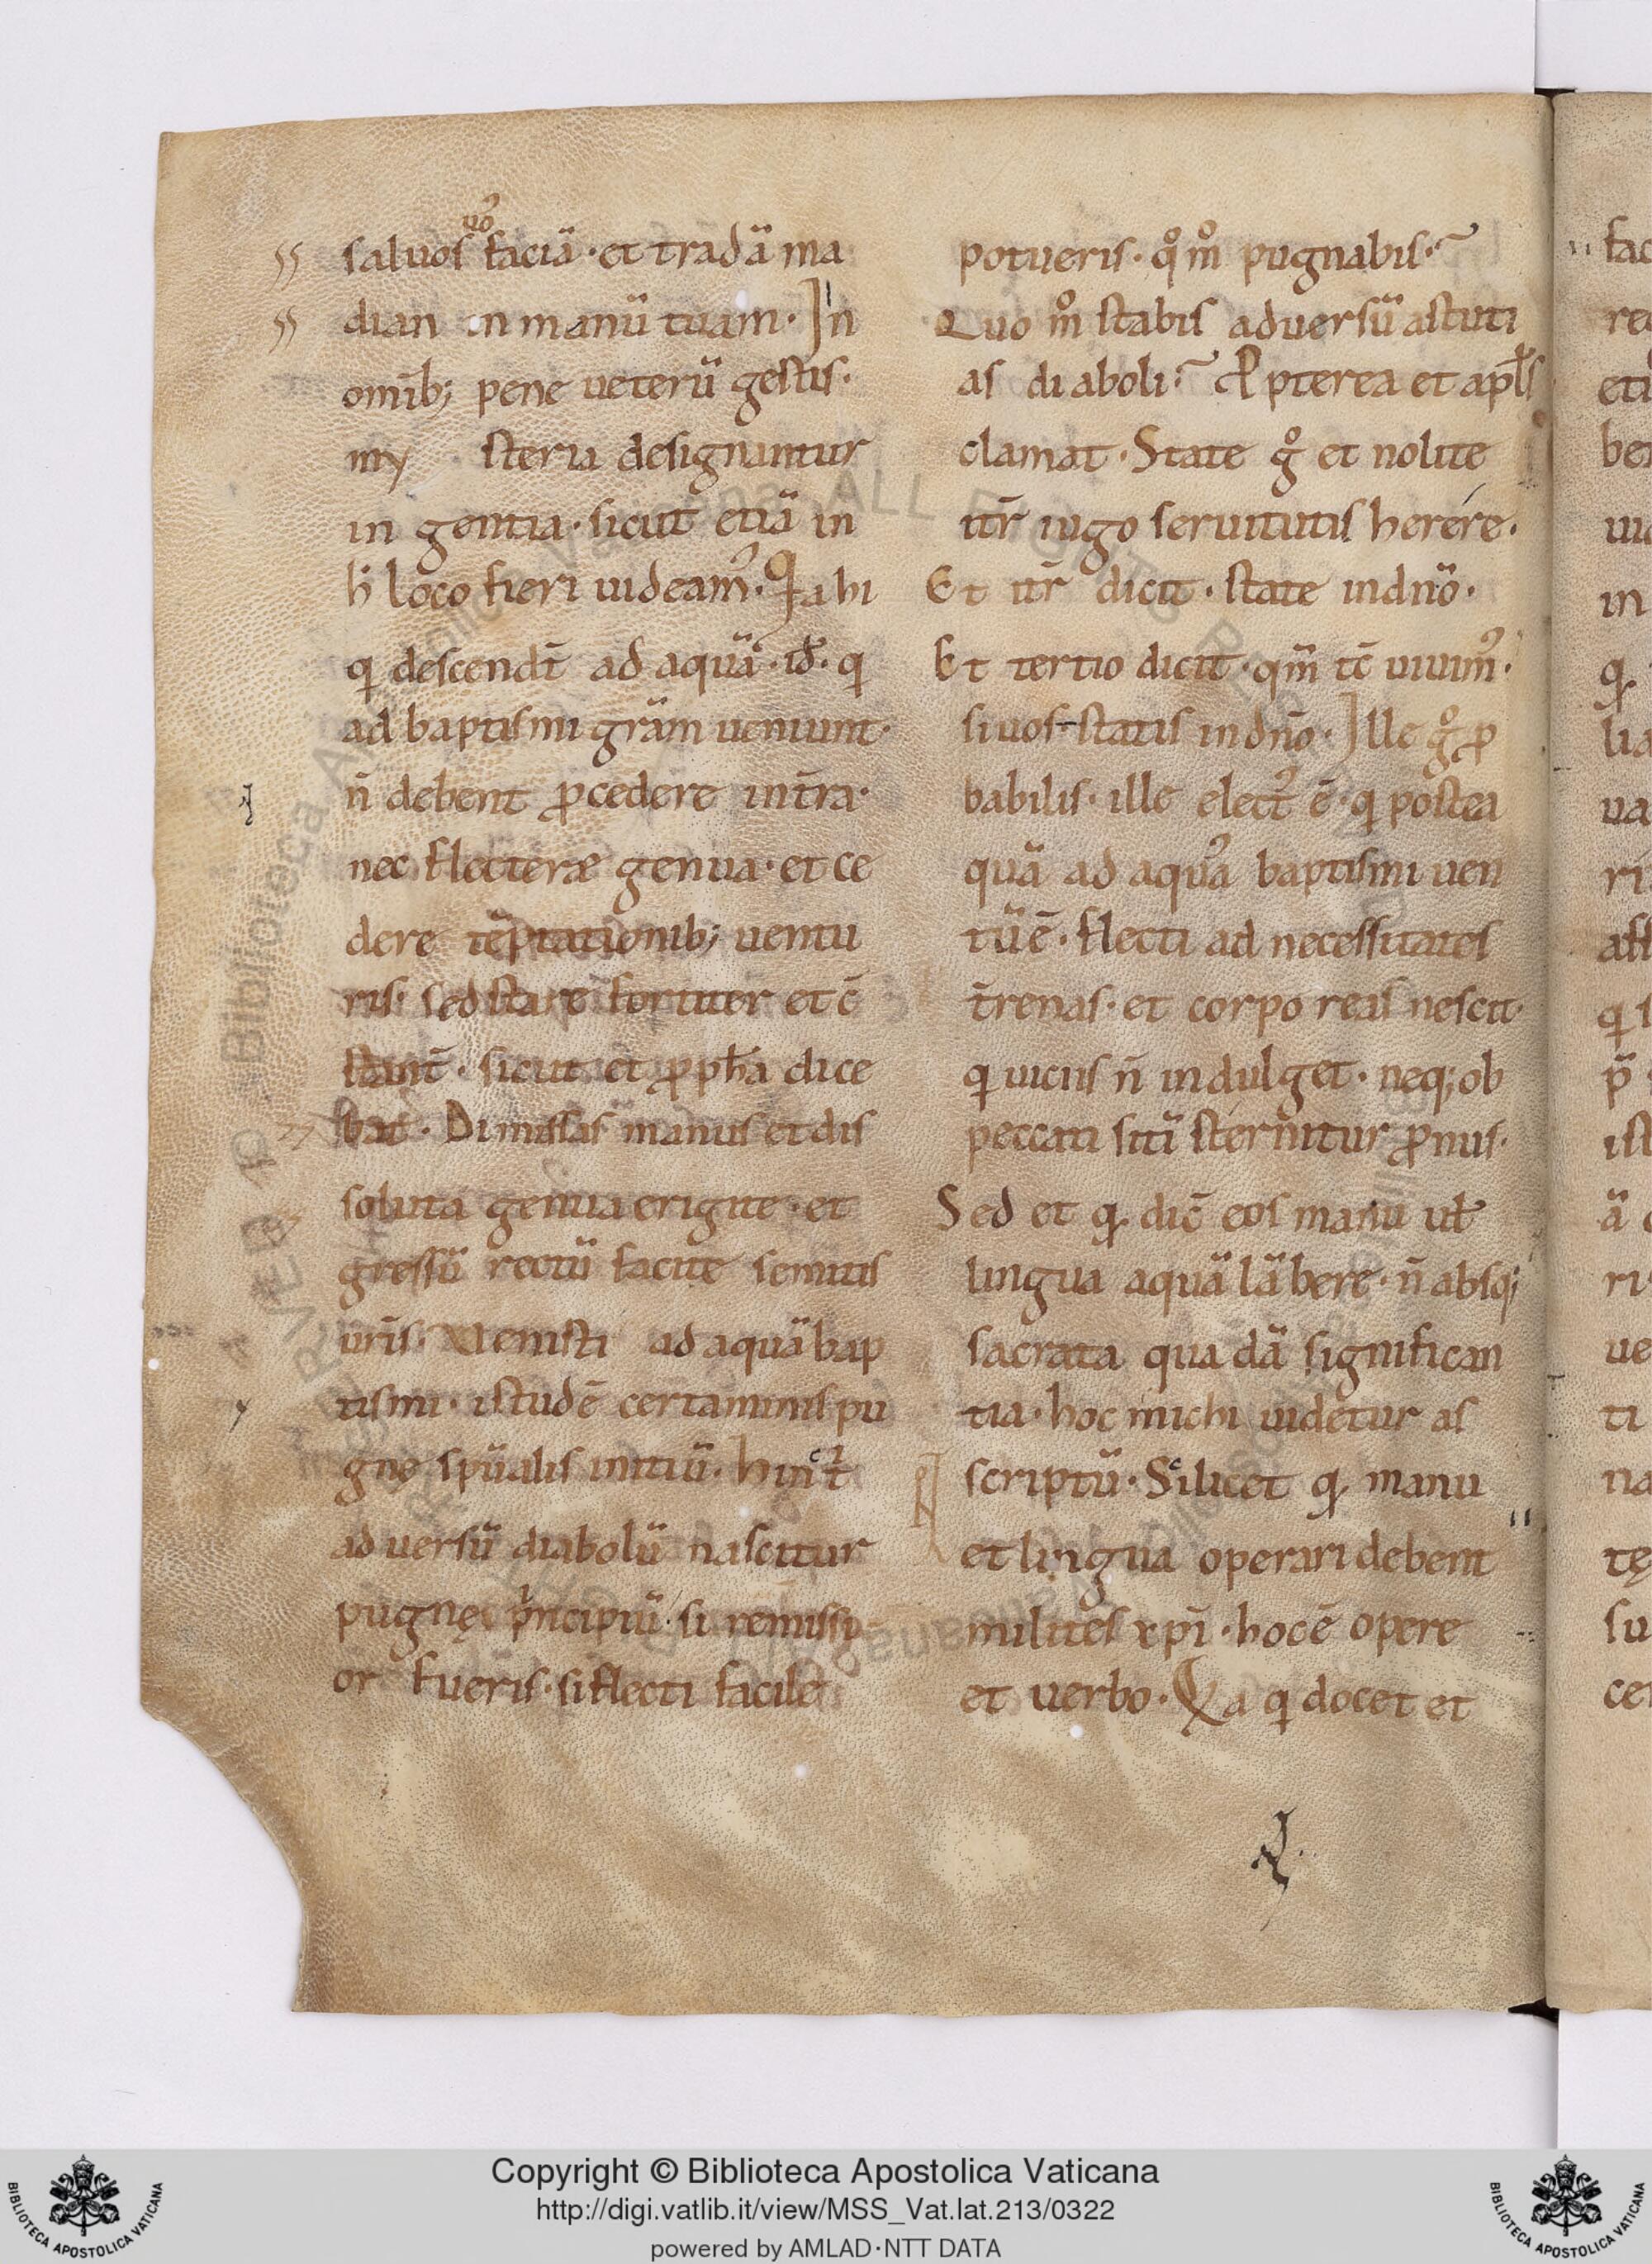 saluos uoˀ faciā · et tradā ma
dian in manū tuam · In
omib; pene ueterū gestis ·
my steria designantur
in gentia · sicut etiā in
h̄ loco fieri uideamˀ ·
q descendt̄ ad aquā · id̄ · q
ad baptismi grām ueniunt ·
n̄ debent ꝓcedere int̄ra ·
nec flecteræ genua · et ce
dere tēptationib; uentu
ris · sed stare fortiter et c̄
stant̄ · sicut et ꝓph̄a dice
bat · Dimissas manus et dis
soluta genua erigite · et
gressū rectū facite semitis
ur̄is · Venisti ad aquā bap
tismi · istud ē certaminis pu
gne spūalis initiū · hinc t̄
ad uersū diabolū nascitur
pugnę pⁱncipiū · si remissi
or fueris · si flecti facile
potueris · qͦ mͦ pugnabis ·
Quo mͦ stabis aduersū astuti
as di aboli · Ꝓpterea et apl̄s
clamat · State gͦ et nolite
it̄r iugo seruitutis herére ·
Et it̄r dicit · state in dn̄o ·
Et tertio dicit · qm̄ tc̄ uiuimˀ ·
si uos statis in dn̄o · Ille gͦ ꝓ
babilis · ille electˀ ē · q postea
quā ad aquā baptismi uen
tū ē · flecti ad necessitates
t̄renas · et corpo reas nescit ·
q uiciis n̄ indulget · neq; ob
peccati sitī sternitur ꝓnus ·
Sed et qͩ dic̄ eos manu ul̄
lingua aquā lābere · n̄ absq;
sacrata qua dā significan
tia · hoc michi uidetur as
scriptū · Scilicet qͩ manu
et lingua operari debent
milites xp̄i · hoc ē opere
et uerbo · Qa q docet et
Copyright © Biblioteca Apostolica Vaticana
http://digi.vatlib.it/view/MSS_Vat.lat.213/0322
powered by AMLAD·NTT DATA
BIBLIOTECA APOSTOLICA VATICANA
BIBLIOTECA APOSTOLICA VATICANA